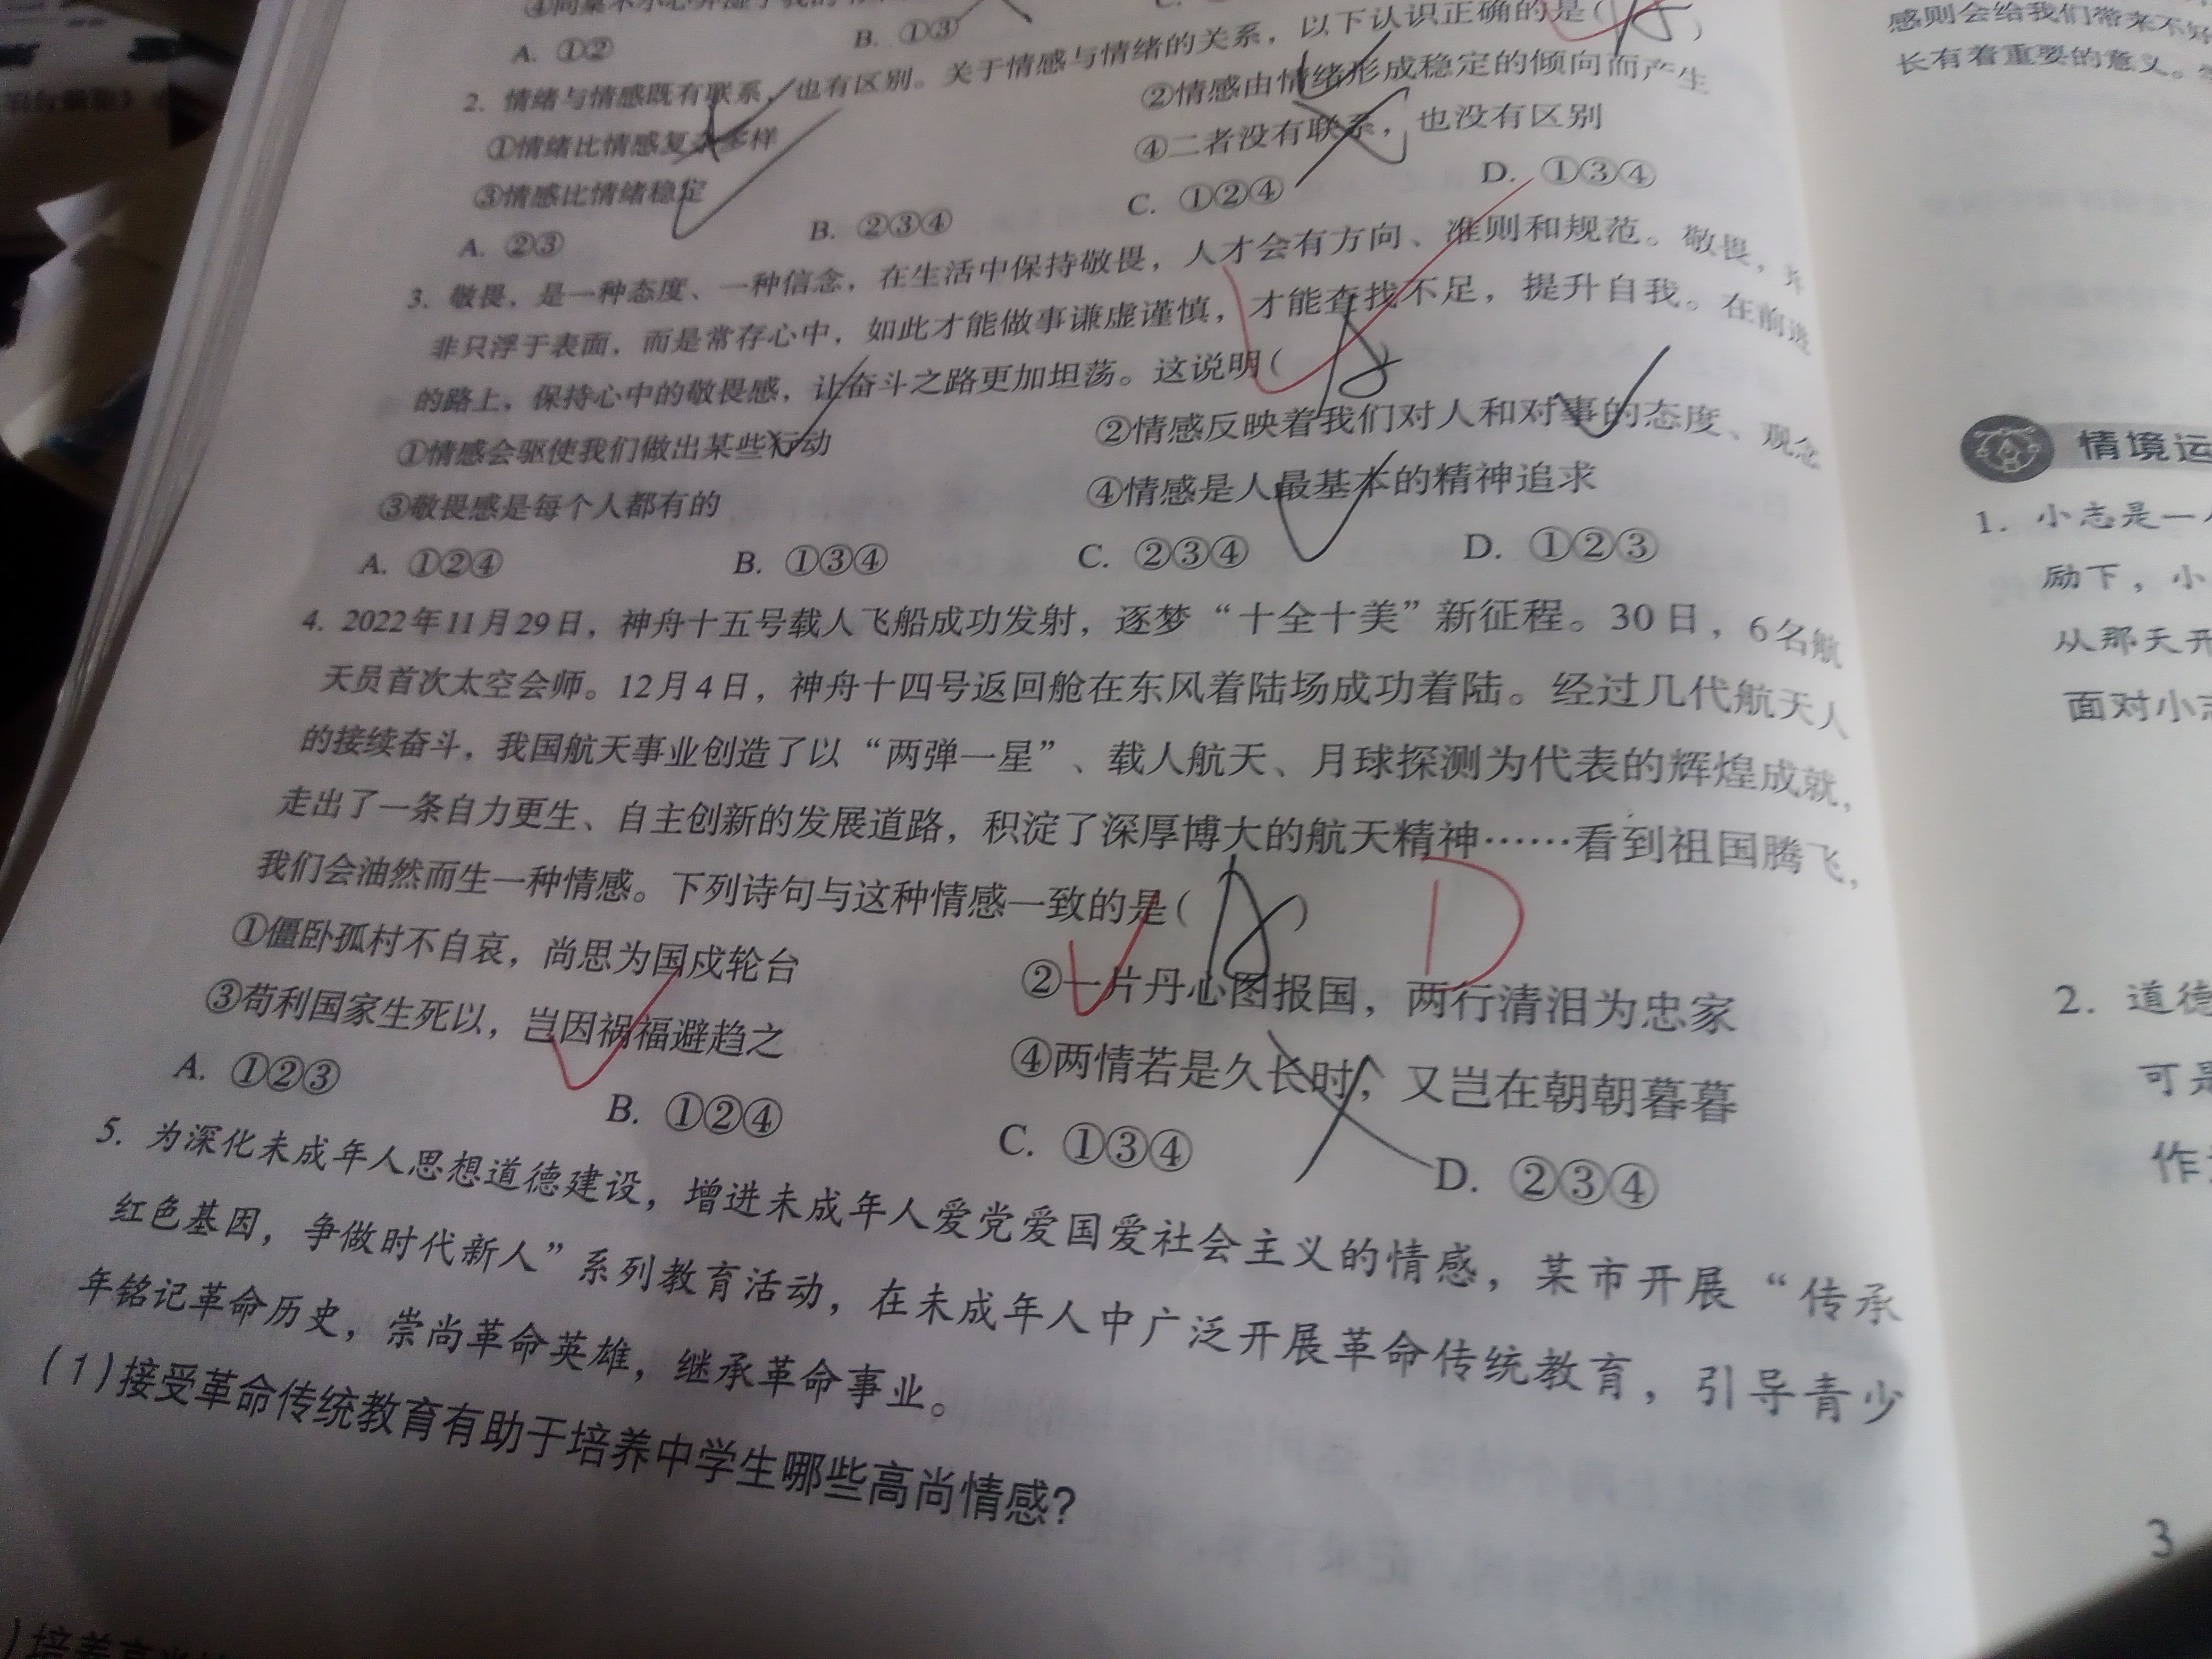 A. ①②
B. ①③
2. 情绪与情感既有联系，也有区别。关于情感与情绪的关系，以下认识正确的是( A )
①情绪比情感复杂多样
②情感由情绪形成稳定的倾向而产生
③情感比情绪稳定
④二者没有联系，也没有区别
A. ②③
B. ②③④
C. ①②④
D. ①③④
3. 敬畏，是一种态度、一种信念，在生活中保持敬畏，人才会有方向、准则和规范。敬畏，并
非只浮于表面，而是常存心中，如此才能做事谦虚谨慎，才能查找不足，提升自我。在前进
的路上，保持心中的敬畏感，让奋斗之路更加坦荡。这说明( A )
①情感会驱使我们做出某些行动
②情感反映着我们对人和对事的态度、观念
③敬畏感是每个人都有的
④情感是人最基本的精神追求
A. ①②④
B. ①③④
C. ②③④
D. ①②③
4. 2022年11月29日，神舟十五号载人飞船成功发射，逐梦“十全十美”新征程。30日，6名航
天员首次太空会师。12月4日，神舟十四号返回舱在东风着陆场成功着陆。经过几代航天人
的接续奋斗，我国航天事业创造了以“两弹一星”、载人航天、月球探测为代表的辉煌成就，
走出了一条自力更生、自主创新的发展道路，积淀了深厚博大的航天精神……看到祖国腾飞，
我们会油然而生一种情感。下列诗句与这种情感一致的是( A ) D
①僵卧孤村不自哀，尚思为国戍轮台
②一片丹心图报国，两行清泪为忠家
③苟利国家生死以，岂因祸福避趋之
④两情若是久长时，又岂在朝朝暮暮
A. ①②③
B. ①②④
C. ①③④
D. ②③④
5. 为深化未成年人思想道德建设，增进未成年人爱党爱国爱社会主义的情感，某市开展“传承
红色基因，争做时代新人”系列教育活动，在未成年人中广泛开展革命传统教育，引导青少
年铭记革命历史，崇尚革命英雄，继承革命事业。
(1)接受革命传统教育有助于培养中学生哪些高尚情感?
感则会给我们带来不好
长有着重要的意义。
情境运
1. 小志是一
励下，小
从那天开
面对小志
2. 道德
可是
作
3